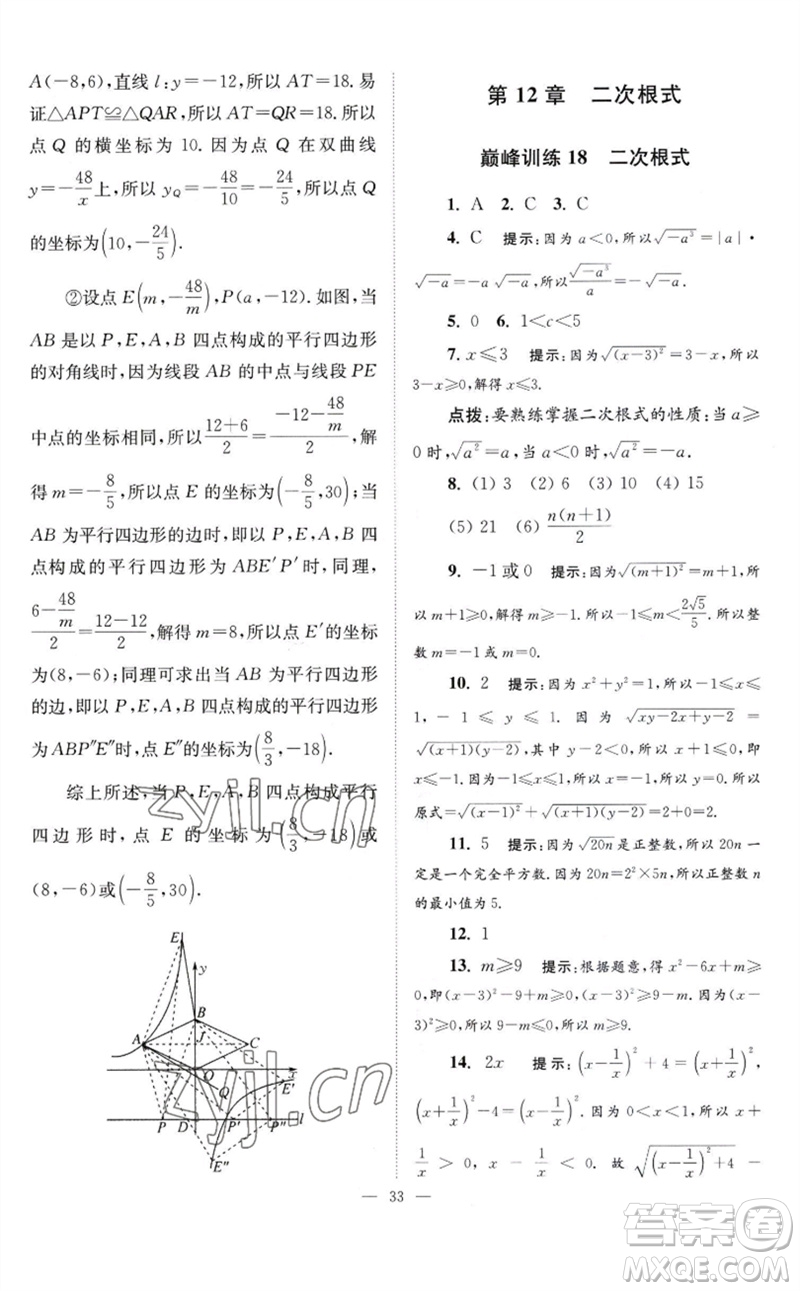 A(-8,6),直线 l:y=-12,所以 AT=18.易
证△APT≌△QAR,所以 AT=QR=18.所以
点 Q 的横坐标为 10.因为点 Q 在双曲线
y=-48/x上,所以 y_Q=-48/10=-24/5,所以点 Q
的坐标为(10,-24/5).
②设点 E(m,-48/m),P(a,-12).如图,当
AB 是以 P,E,A,B 四点构成的平行四边形
的对角线时,因为线段 AB 的中点与线段 PE
中点的坐标相同,所以(12+6)/2=(-12-48/m)/2,解
得 m=-8/5,所以点 E 的坐标为(-8/5,30);当
AB 为平行四边形的边时,即以 P,E,A,B 四
点构成的平行四边形为 ABE′P′时,同理,
(6-48/m)/2=(12-12)/2,解得 m=8,所以点 E′的坐标
为(8,-6);同理可求出当 AB 为平行四边形
的边,即以 P,E,A,B 四点构成的平行四边形
为 ABP″E″时,点 E″的坐标为(8/3,-18).
综上所述,当 P,E,A,B 四点构成平行
四边形时,点 E 的坐标为(8/3,-18)或
(8,-6)或(-8/5,30).
E
y
B
A
J
C
O
x
Q
E′
P
D
P′
P″
l
E″
第 12 章 二次根式
巅峰训练 18 二次根式
1. A 2. C 3. C
4. C 提示:因为 a<0,所以√(-a³)=|a|·
√(-a)=-a√(-a),所以√(-a³)/a=-√(-a).
5. 0 6. 1<c<5
7. x≤3 提示:因为√((x-3)²)=3-x,所以
3-x≥0,解得 x≤3.
点拨:要熟练掌握二次根式的性质:当 a≥
0时,√(a²)=a,当 a<0 时,√(a²)=-a.
8. (1) 3 (2) 6 (3) 10 (4) 15
(5) 21 (6) n(n+1)/2
9. -1或0 提示:因为√((m+1)²)=m+1,所
以 m+1≥0,解得 m≥-1.所以-1≤m<2√5/5.所以整
数 m=-1 或 0.
10. 2 提示:因为 x²+y²=1,所以-1≤x≤
1,-1≤y≤1.因为√(xy-2x+y-2)=
√((x+1)(y-2)),其中 y-2<0,所以 x+1≤0,即
x≤-1.所以 x=-1.所以1=x²=1-y².所以 y=0.所以
原式=√((x-1)²)+√((x+1)(y-2))=2+0=2.
11. 5 提示:因为√(20n)是正整数,所以 20n 一
定是一个完全平方数.因为 20n=2²×5n,所以正整数 n
的最小值为 5.
12. 1
13. m≥9 提示:根据题意,得 x²-6x+m≥
0,即(x-3)²-9+m≥0,所以(x-3)²≥9-m.因为(x-
3)²≥0,所以 9-m≤0.所以 m≥9.
14. 2x 提示:(x-1/x)²+4=(x+1/x)²,
(x+1/x)²-4=(x-1/x)².因为 0<x<1,所以 x+
1/x>0,x-1/x<0.故√((x-1/x)²+4)-
— 33 —
zyjl.cn
zyjl.cn
答案卷
MXQE.COM